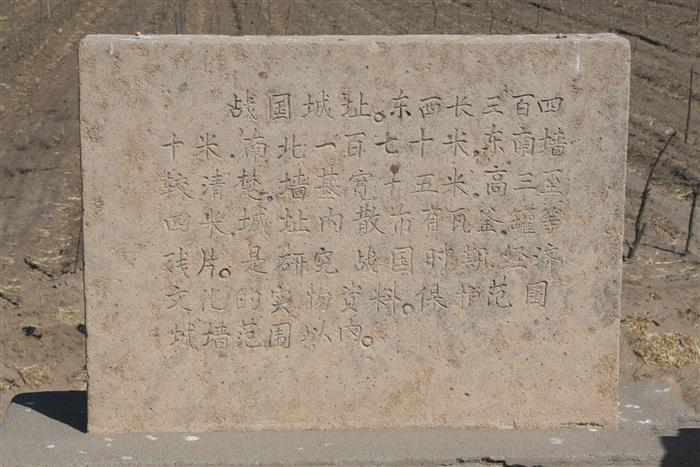 战国城址。东西长三百四
十米，南北一百七十米，东南墙
较清楚。墙基宽十五米，高三至
四米。城址内散布有瓦釜罐等
残片。是研究战国时期经济
文化的实物资料。保护范围
城墙范围以内。